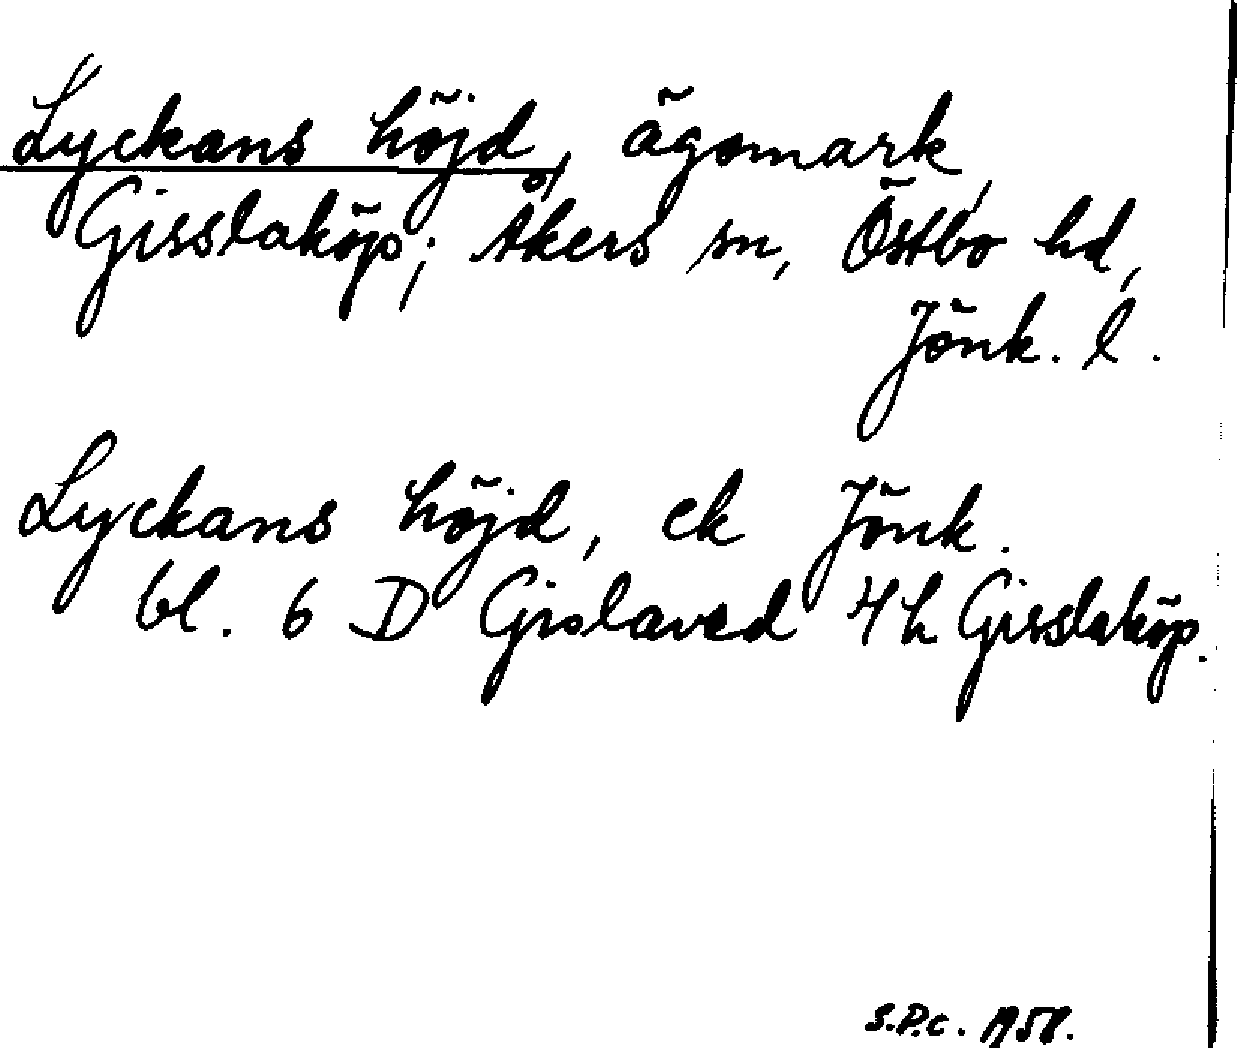 Lyckans höjd, ägomark,
Gisslaköp; Åkers sn, Östbo hd,
Jönk. l.
Lyckans höjd, ek Jönk.
bl. 6 D Gislaved 4 h Gisslaköp.
S.P.C. 1958.